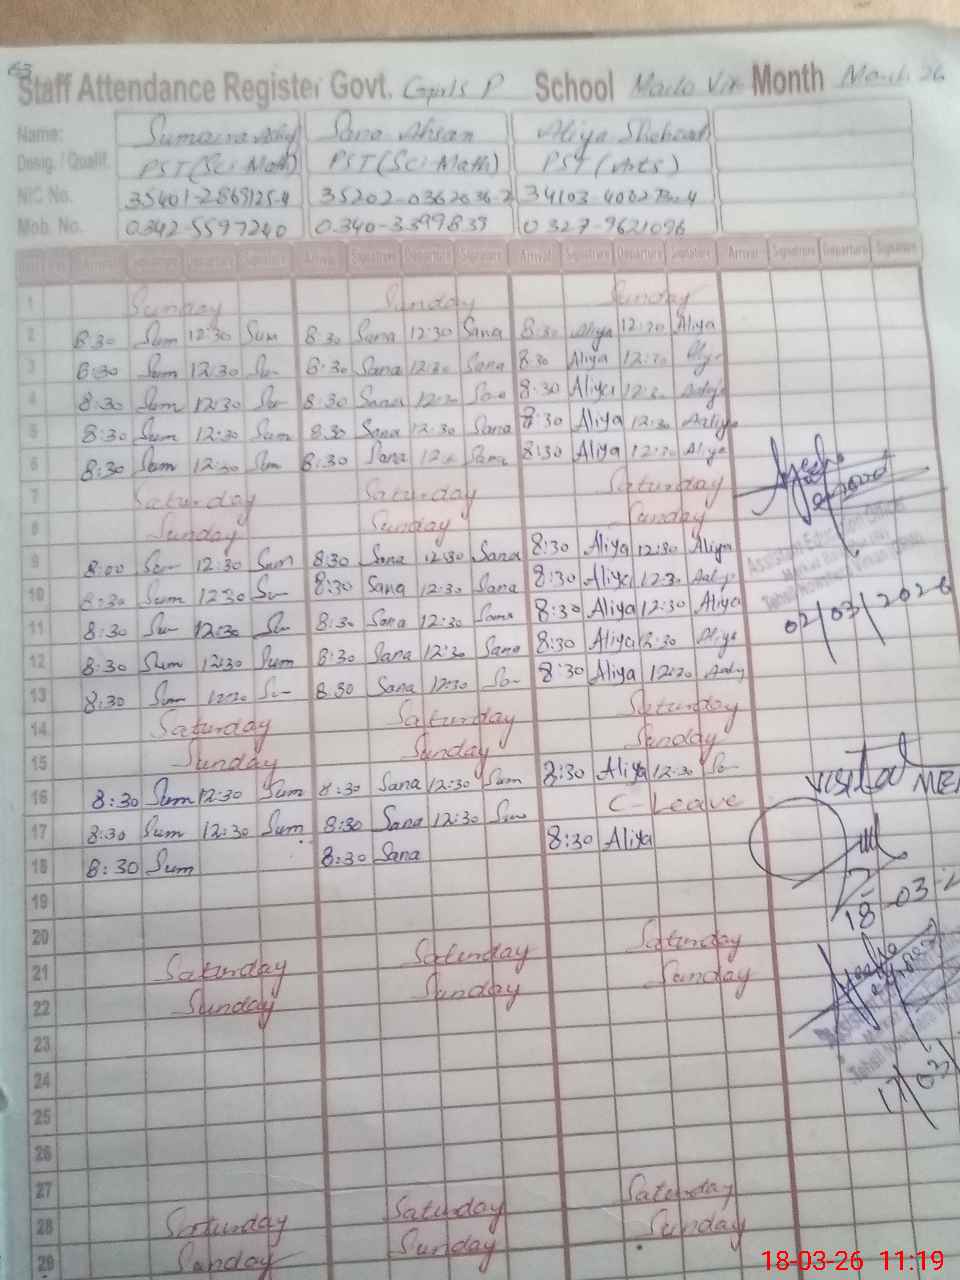 Staff Attendance Register Govt. Girls P School Month March 26
Name: Sumaira Sana Ahsan Aliya Shehzadi
Desig. / Qualif. PST (Sci-Math) PST (Sci-Math) PST (Arts)
NIC No. 35202-0362036-2
Mob. No. 0342-5597240 0340-3399839 0327-9621096
Arrival Signature Departure Signature Arrival Signature Departure Signature Arrival Signature Departure Signature Arrival Signature Departure Signature
1 Sunday Sunday Sunday
2 8:30 Sum 12:30 Sum 8:30 Sana 12:30 Sana 8:30 Aliya 12:30 Aliya
3 8:30 Sum 12:30 8:30 Sana 12:30 Sana 8:30 Aliya 12:30
4 8:30 Sum 12:30 8:30 Sana 12:30 Sana 8:30 Aliya
5 8:30 Sum 12:30 Sum 8:30 Sana 12:30 Sana 8:30 Aliya 12:30 Aaliya
6 8:30 Sum 12:30 Sum 8:30 Sana Sana 8:30 Aliya 12:30 Aliya
7 Saturday Saturday Saturday
8 Sunday Sunday Sunday
9 8:00 12:30 Sum 8:30 Sana 12:30 Sana 8:30 Aliya 12:30 Aliya
10 8:30 Sum 12:30 8:30 Sana 12:30 Sana 8:30 Aliya 12:30
11 8:30 12:30 8:30 Sana 12:30 Sana 8:30 Aliya 12:30 Aliya
02/03/2026
12 8:30 Sum 12:30 Sum 8:30 Sana 12:30 Sana 8:30 Aliya 12:30 Aliya
13 8:30 Sum 12:30 8:30 Sana 12:30 8:30 Aliya 12:30
14 Saturday Saturday Saturday
15 Sunday Sunday Sunday
16 8:30 Sum 12:30 Sum 8:30 Sana 12:30 8:30 Aliya 12:30
Visited
17 8:30 Sum 12:30 Sum 8:30 Sana 12:30 C-Leave
18 8:30 Sum 8:30 Sana 8:30 Aliya
19
18-03-2
20
21 Saturday Saturday Saturday
22 Sunday Sunday Sunday
23
24
17/03/
25
26
27
28 Saturday Saturday Saturday
29 Sunday Sunday Sunday
18-03-26 11:19